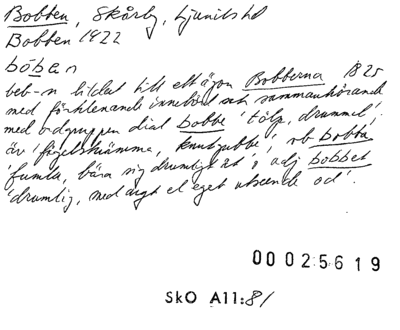 Bobben, Skårby, Ljunits hd
Bobben 1922
båban
beb-n bildat till ett ägon Bobberna 1825
med förklenande innebörd och sammanhörande
med ordgruppen dial bobbe 'tölp, drummel'.
äv 'fågelskrämma, knubgubbe', vb bobba
'fumla, bära sig drumligt åt', adj bobbet
'drumlig, med argt el eget utseende od'.
00025619
SkO A11:81